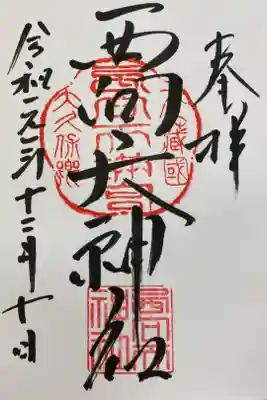 奉拝
西向天神社
令和元年十二月十日